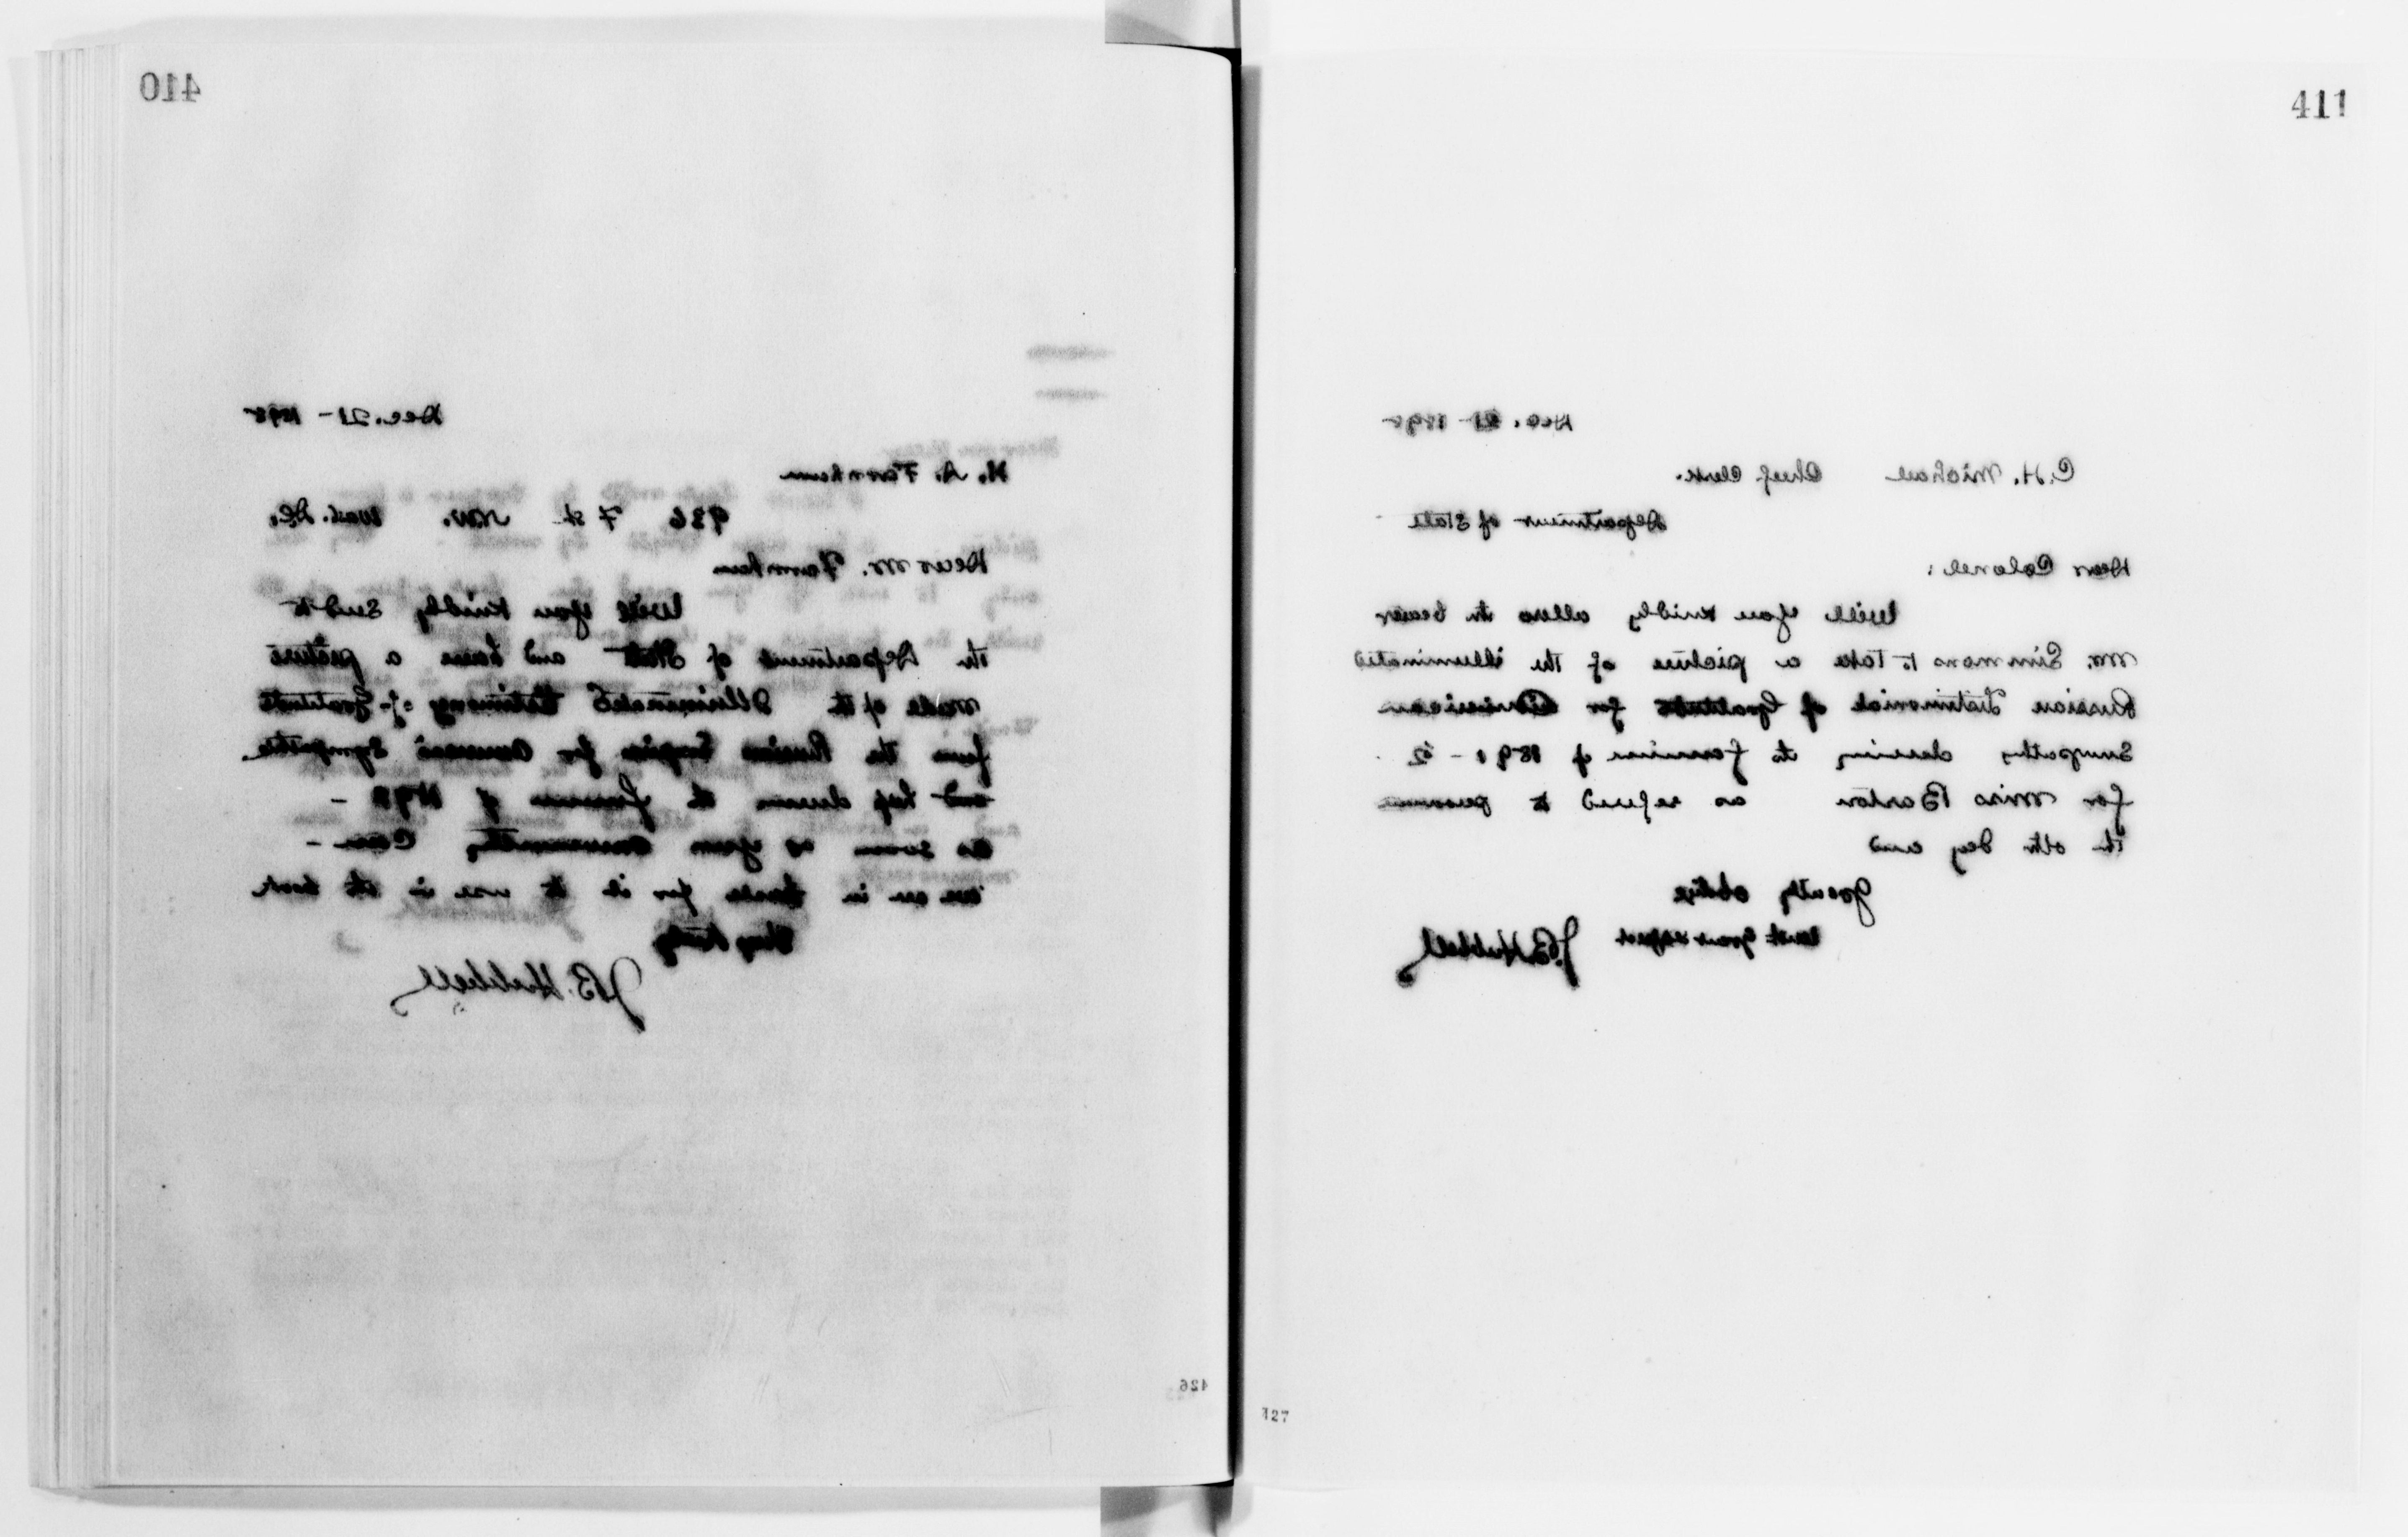 410
Dec. 21 - 1898
H. A. Farnham
936 F st. N.W. Wash. D.C.
Dear Mr. Farnham
Will you kindly send to
the Department of State and have a picture
made of the Illuminated testimony of Gratitude
from the Russian Empire for sympathy
and help during the famine of
as soon as you conveniently can -
we are in haste for it to use in the book
Very truly
J.B. Hubbell
426
411
Dec. 21 - 1898
C.H. Michael Chief Clerk.
Department of State
Dear Colonel:
Will you kindly allow the bearer
Mr. Simmons to take a picture of the illuminated
Russian Testimonial of Gratitude for American
Sympathy during the famine of 1891 - 2
for Miss Barton as refered to
the othr day and
greatly oblige
with great respect J.B. Hubbell
127